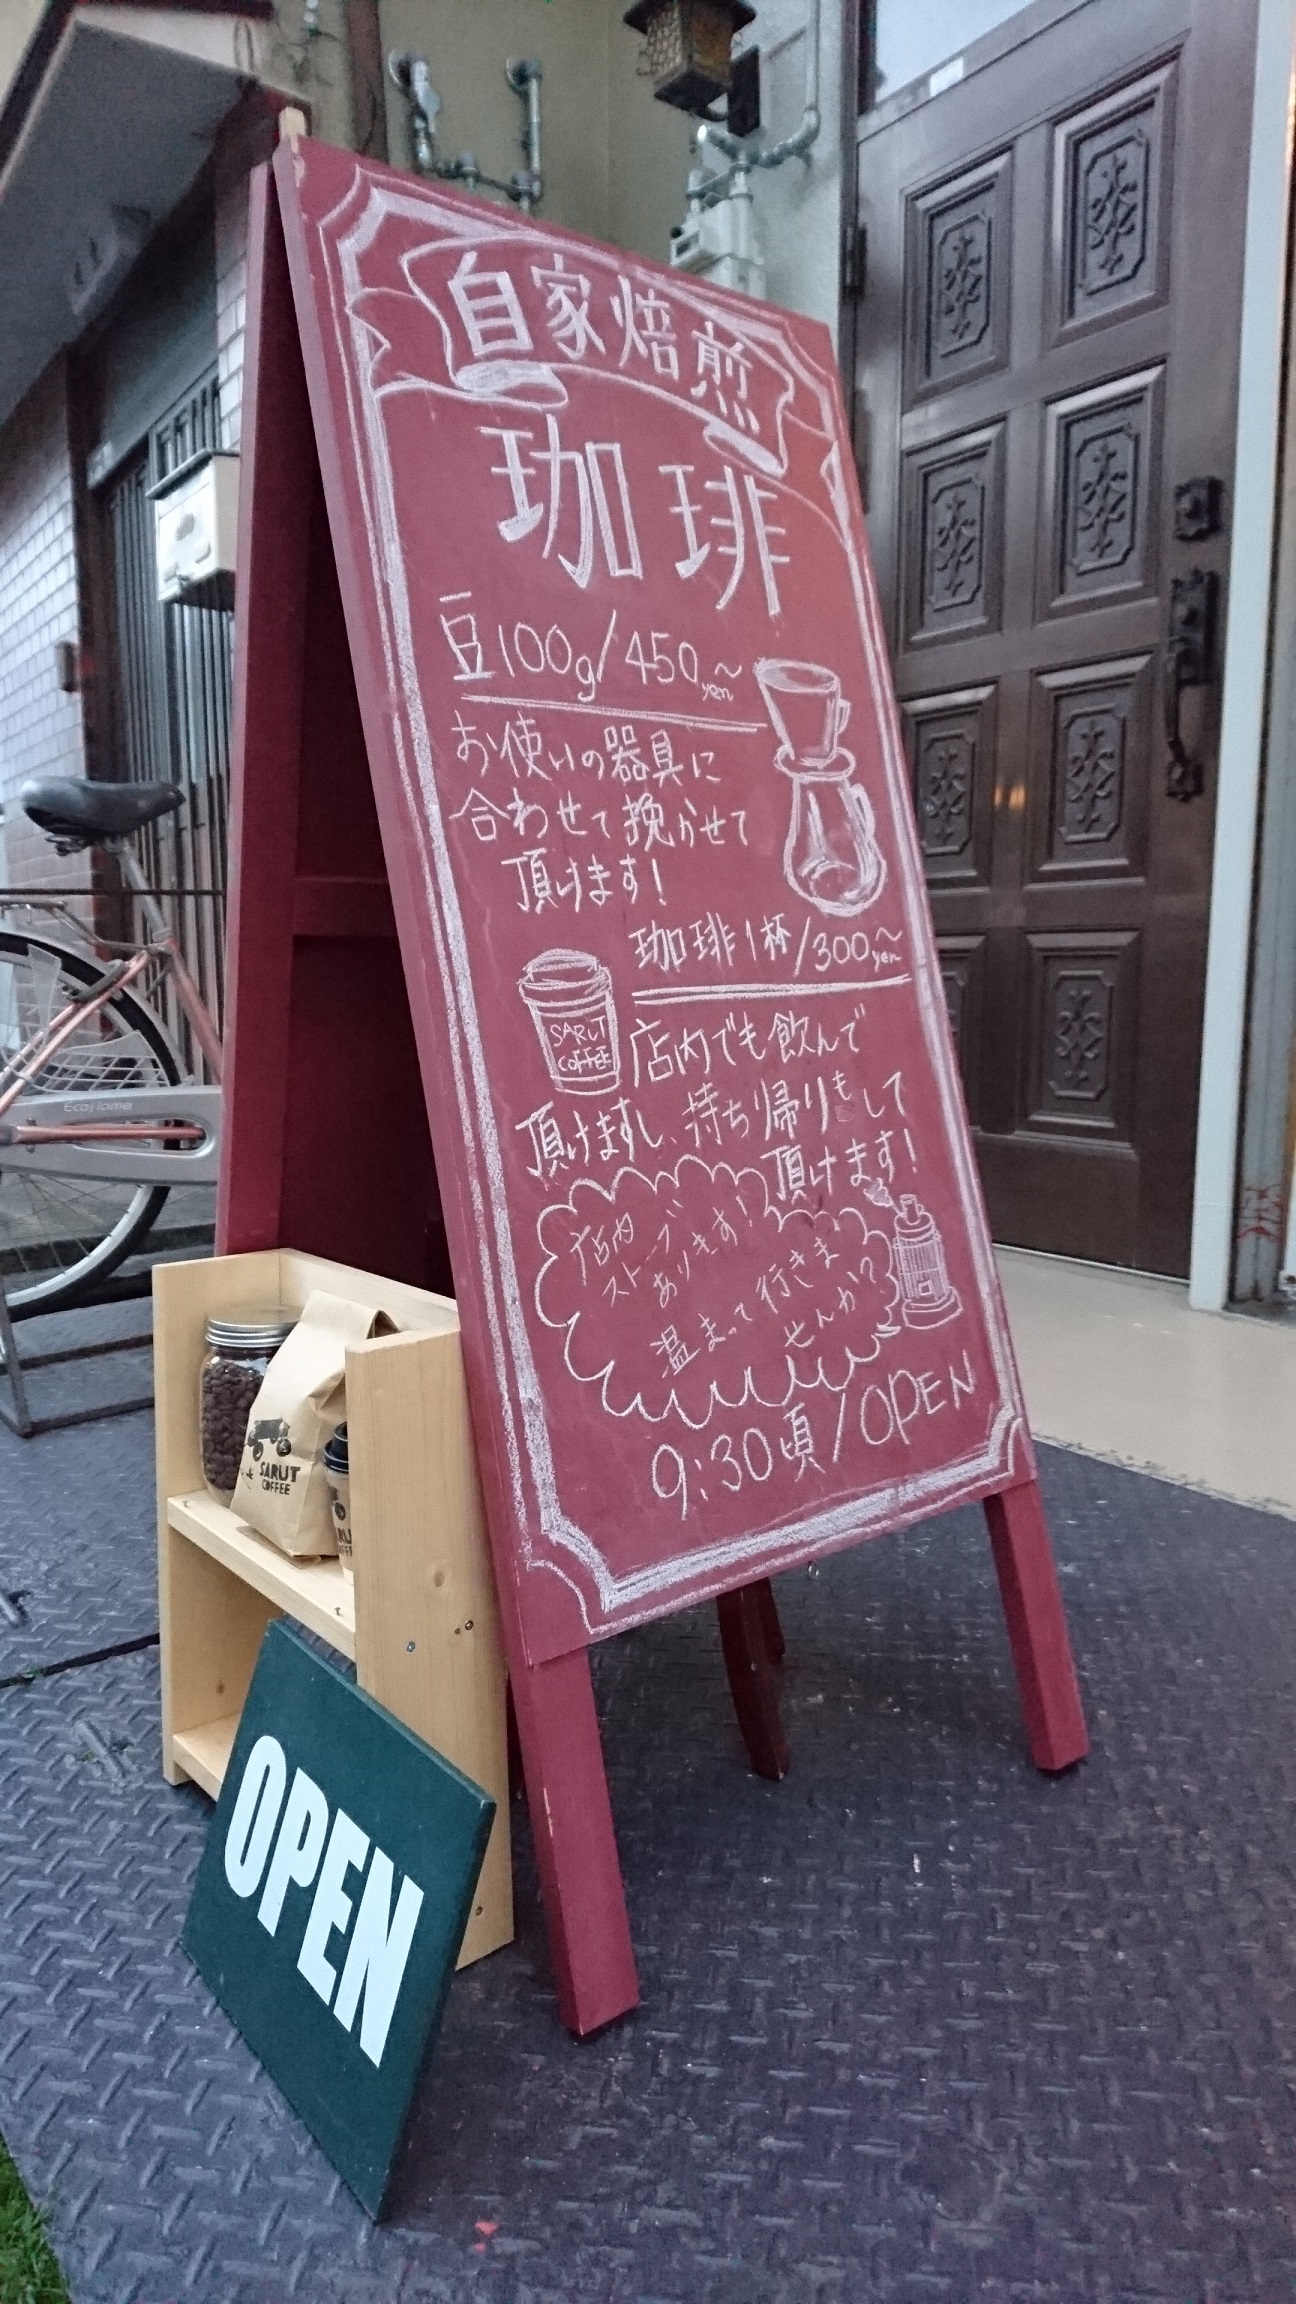 自家焙煎
珈琲
豆100g/450yen~
お使いの器具に
合わせて挽かせて
頂けます!
珈琲1杯/300yen~
SARUT
COFFEE
店内でも飲んで
頂けますし、持ち帰りもして
頂けます!
店内
ストーブ
あります!
温まって行きま
せんか?
9:30頃/OPEN
EcoHome
SARUT
COFFEE
OPEN